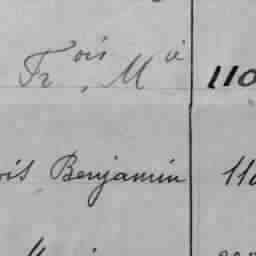 Fr ois, M a 110
ois Benjamin 110